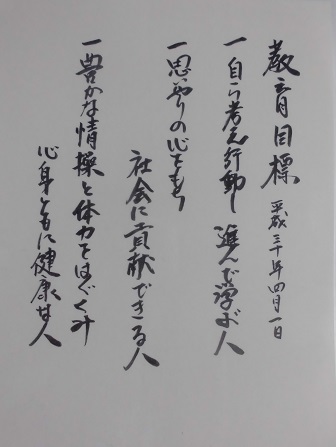 教育目標 平成三十年四月一日
一 自ら考え行動し進んで学ぶ人
一 思いやりの心をもち
社会に貢献できる人
一 豊かな情操と体力をはぐくみ
心身ともに健康な人